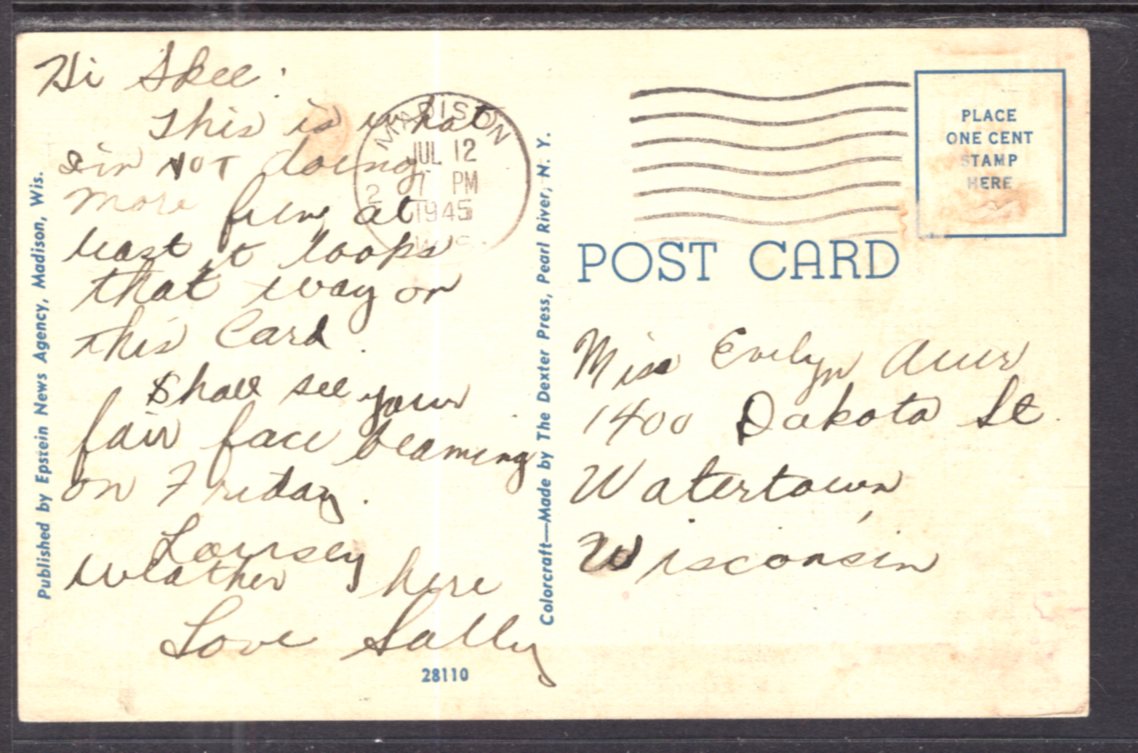 Hi Skee.
This is what
I'm NOT doing
more fun, at
least it looks
that way on
this Card.
Shall see your
fair face beaming
on Friday.
Lousey
weather here
Love Sally
Published by Epstein News Agency, Madison, Wis.
28110
Colorcraft—Made by The Dexter Press, Pearl River, N. Y.
MADISON
JUL 12
7 PM
1945
WIS.
PLACE
ONE CENT
STAMP
HERE
POST CARD
Miss Evelyn Auer
1400 Dakota St.
Watertown
Wisconsin